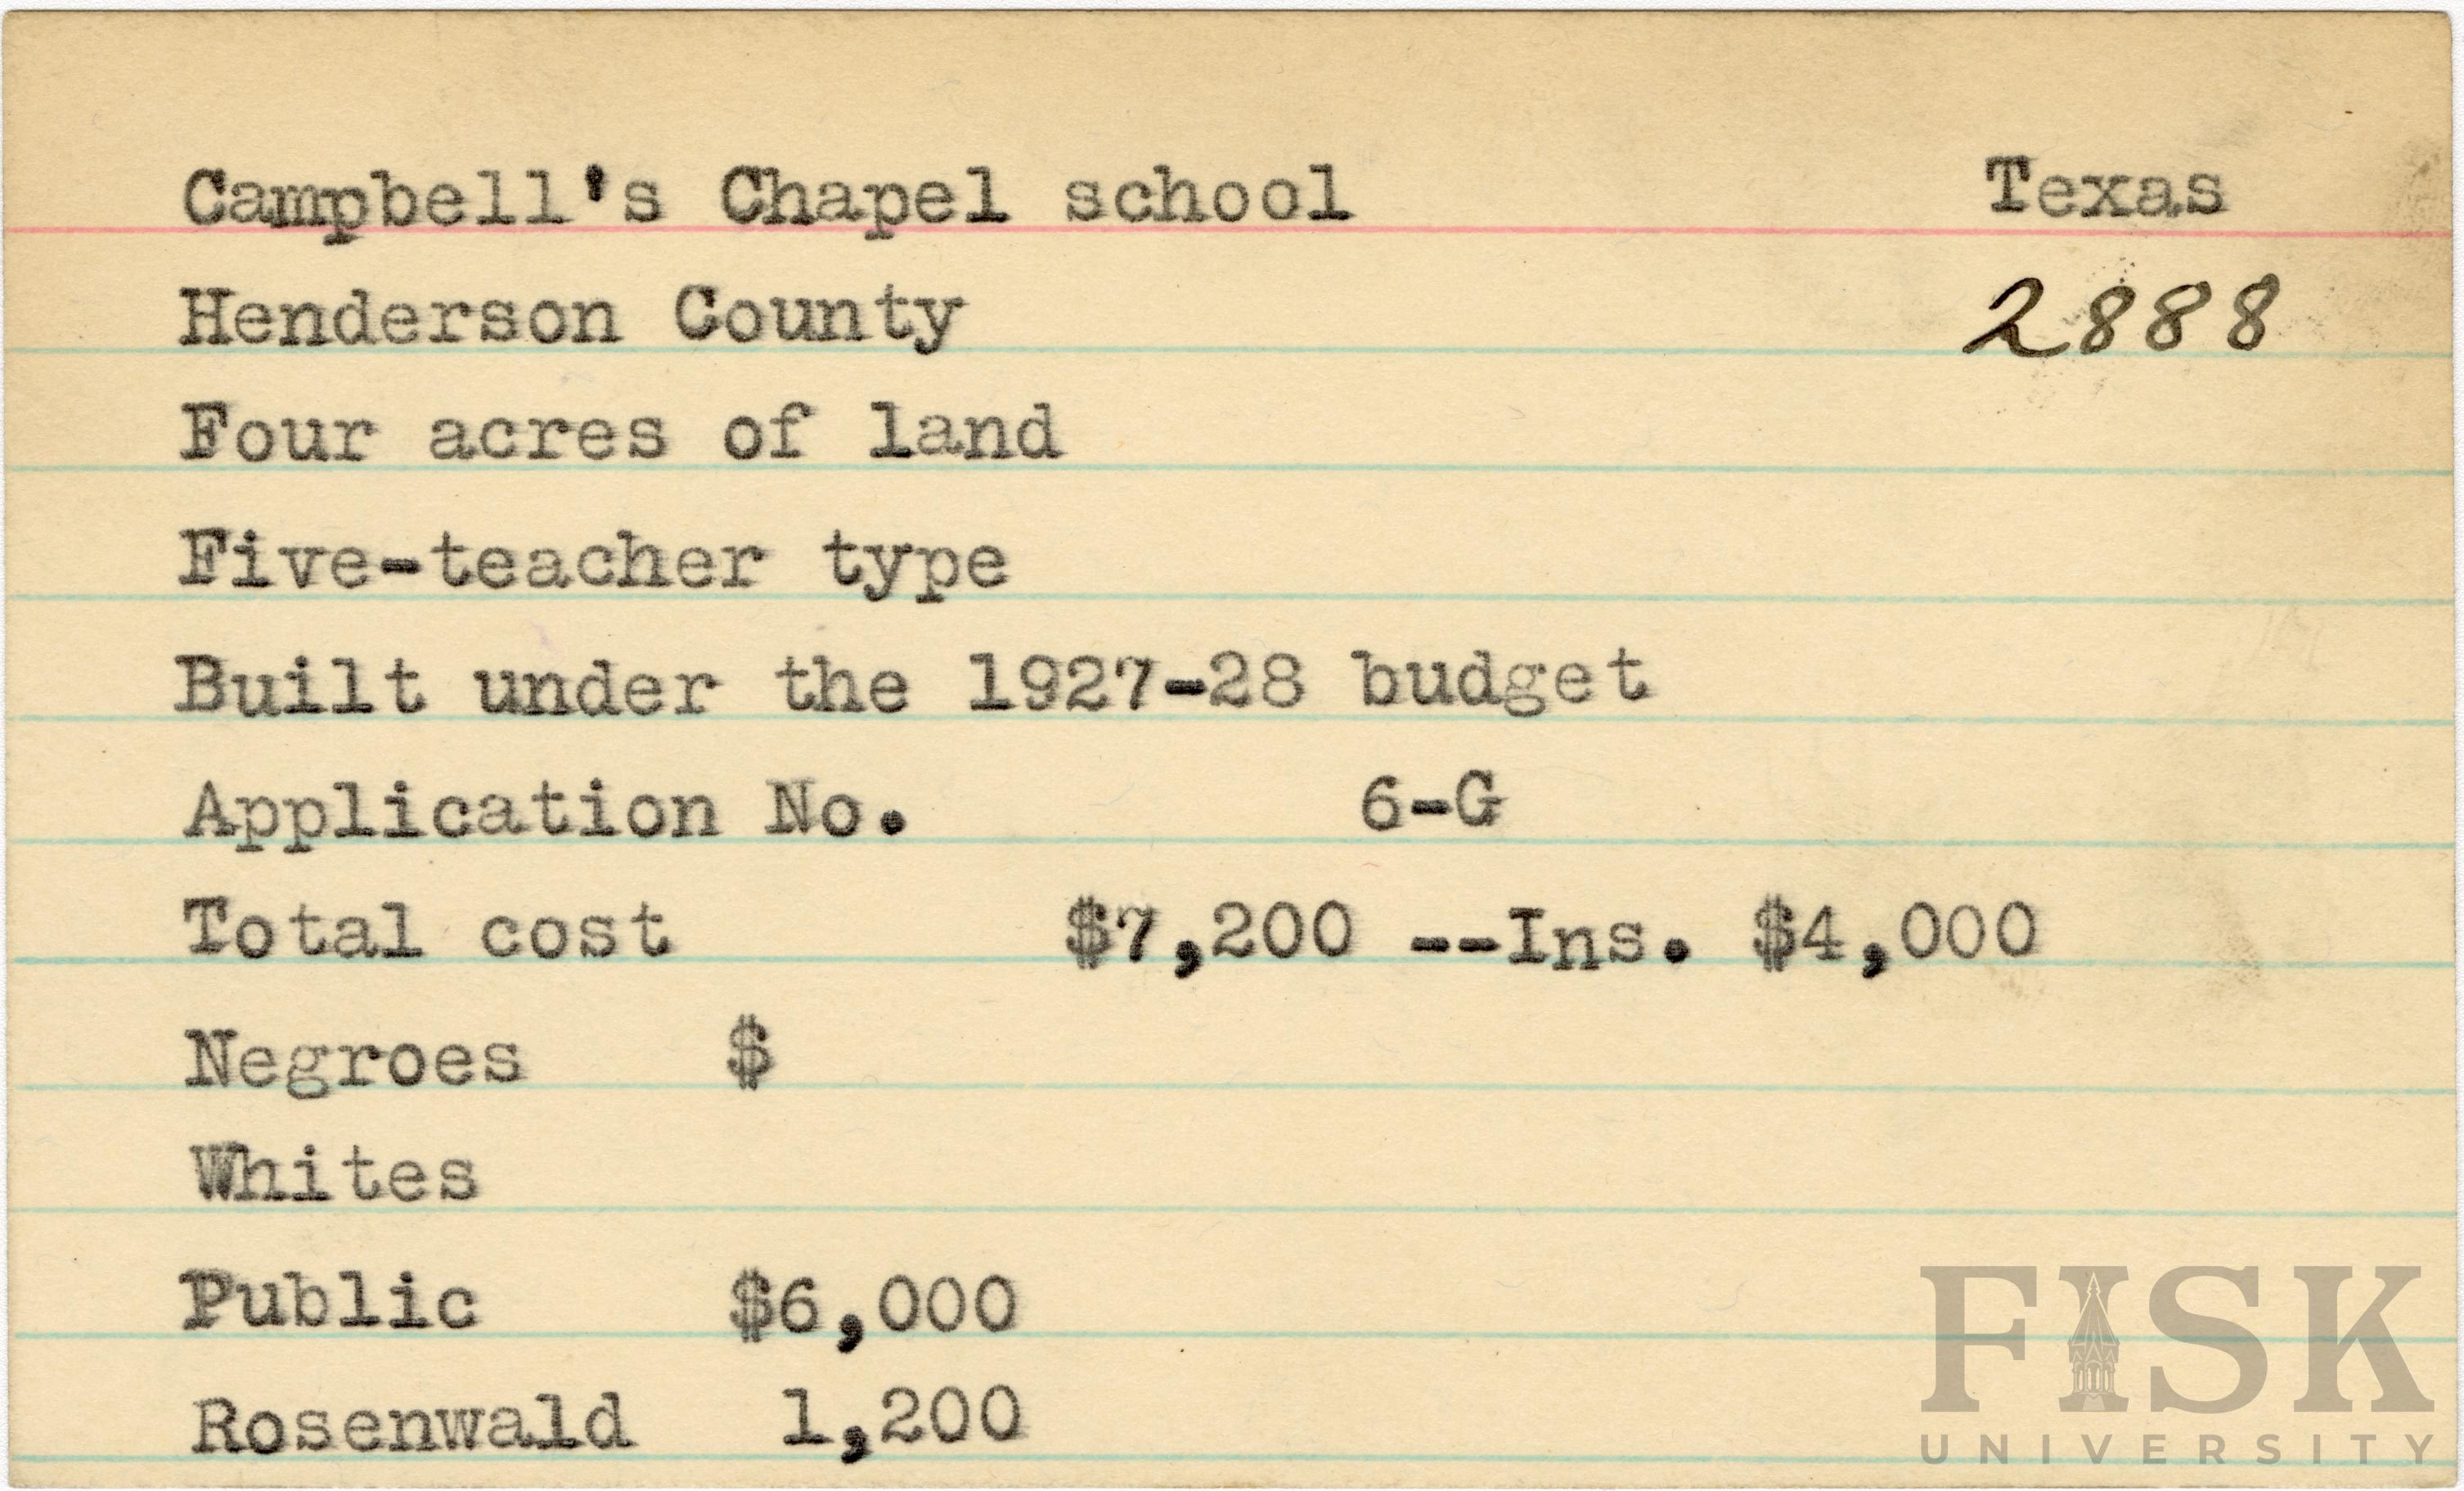 Campbell's Chapel school Texas
Henderson County 2888
Four acres of land
Five-teacher type
Built under the 1927-28 budget
Application No. 6-G
Total cost $7,200 --Ins. $4,000
Negroes $
Whites
Public $6,000
Rosenwald 1,200
FISK
UNIVERSITY